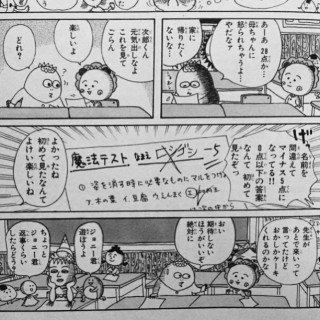 あーあ 28点か…
母ちゃんに
怒られちゃうよ…
やだなァ
家に
帰りたく
ないな…
次郎くん
元気出しなよ
これを見て
ごらん
楽しいよ
どれ?
げっ
名前を
間違えて
マイナス5点に
なってる!!
0点以下の答案
なんて 初めて
見たぞっ
魔法テスト
-5
①姿を消す時に必要なものにマルをつけ
ア.木の葉 イ.豆腐 ウ.
よかったね
初めて見たなんて
よけい楽しいね
先生が
あとで来いって
言ってたけど
おかしかケーキ
くれるのかな
おい
期待しない
ほうがいいぞ
絶対に
ジョニー君
遊ぼうよ
ジョニー君
ちょっと
返事くらい
したらどう?